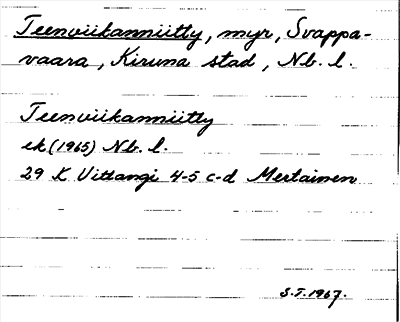 Teenviikanniitty, myr, Svappa-
vaara, Kiruna stad, Nb. l.
Teenviikanniitty
ek (1965) Nb. l.
29 K Vittangi 4-5 c-d Mertainen
S.T. 1967.